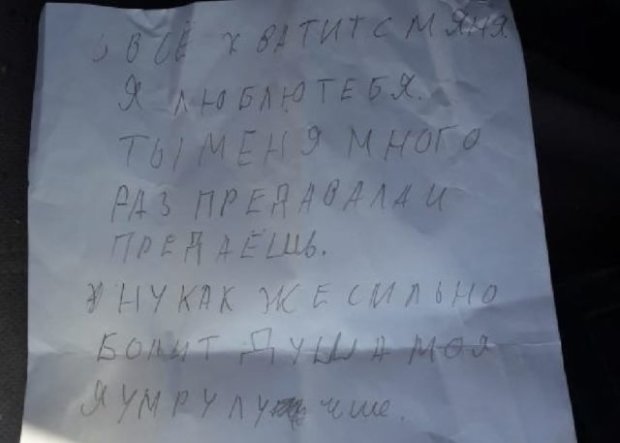 ВСЁ ХВАТИТ С МЯНЯ.
Я ЛЮБЛЮ ТЕБЯ.
ТЫ МЕНЯ МНОГО
РАЗ ПРЕДАВАЛА И
ПРЕДАЁШЬ.
НУ КАК ЖЕ СИЛЬНО
БОЛИТ ДУША МОЯ
Я УМРУ ЛУ чше.